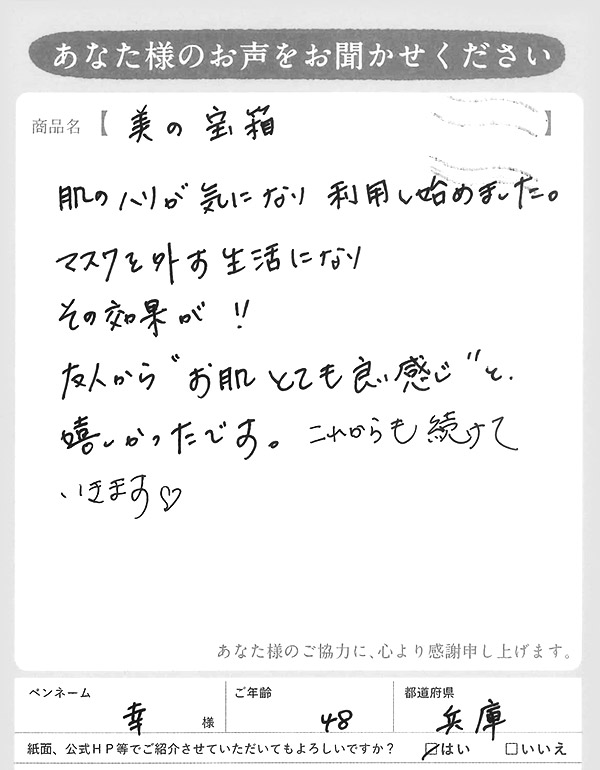 あなた様のお声をお聞かせください
商品名【 美の宝箱 】
肌のハリが気になり 利用し始めました。
マスクを外す生活になり
その効果が!!
友人から"お肌とても良い感じ"と、
嬉しかったです。これからも続けて
いきます♡
あなた様のご協力に、心より感謝申し上げます。
ペンネーム ご年齢 都道府県
幸 様 48 兵庫
紙面、公式HP等でご紹介させていただいてもよろしいですか? ☑はい □いいえ